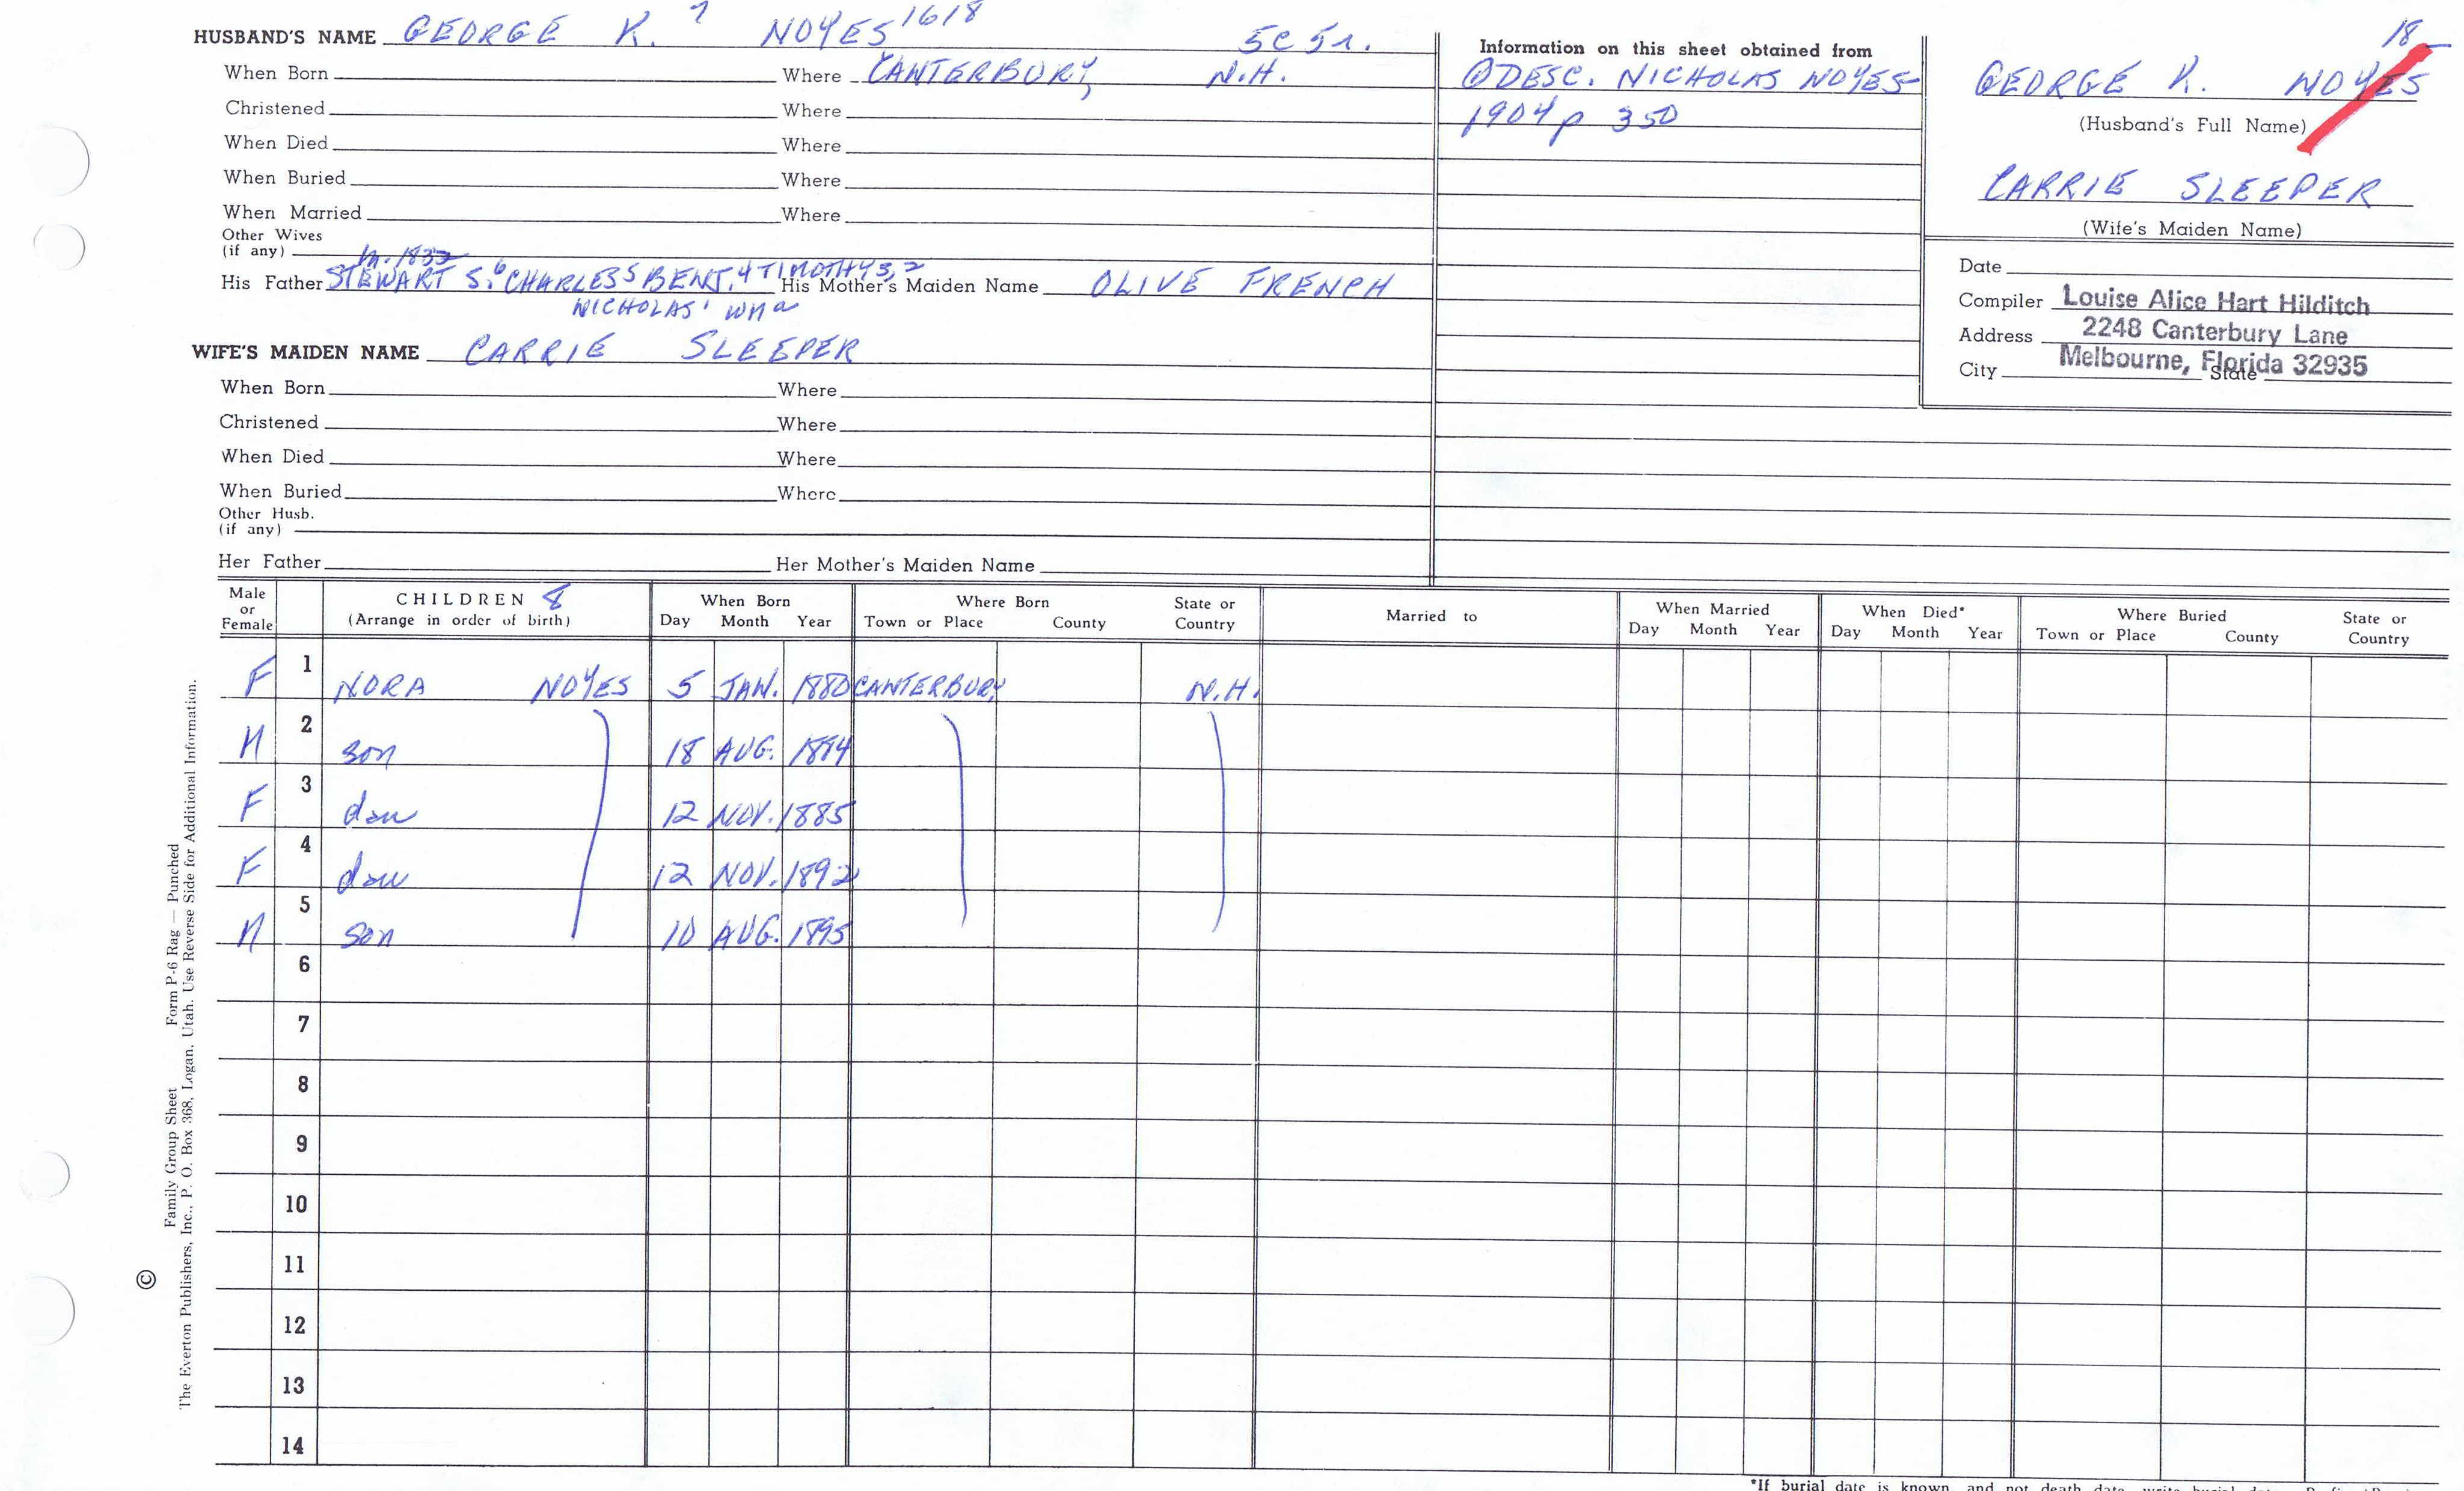 HUSBAND'S NAME GEORGE K. 7 NOYES 1618 5C 5r.
When Born Where CANTERBURY, N.H.
Christened Where
When Died Where
When Buried Where
When Married Where
Other Wives
(if any) m. 1833
His Father STEWART S.6 CHARLES5 BENJ.4 TIMOTHY3,2 His Mother's Maiden Name OLIVE FRENCH
NICHOLAS1 Wm a
WIFE'S MAIDEN NAME CARRIE SLEEPER
When Born Where
Christened Where
When Died Where
When Buried Where
Other Husb.
(if any)
Her Father Her Mother's Maiden Name
Information on this sheet obtained from
DESC. NICHOLAS NOYES
1904 p 350
18
GEORGE K. NOYES
(Husband's Full Name)
CARRIE SLEEPER
(Wife's Maiden Name)
Date
Compiler Louise Alice Hart Hilditch
Address 2248 Canterbury Lane
City Melbourne, Florida 32935 State
Male or Female CHILDREN 8 (Arrange in order of birth) When Born Day Month Year Where Born Town or Place County State or Country Married to When Married Day Month Year When Died* Day Month Year Where Buried Town or Place County State or Country
F 1 NORA NOYES 5 JAN. 1880 CANTERBURY N.H.
M 2 son 18 AUG. 1884
F 3 dau 12 NOV. 1885
F 4 dau 12 NOV. 1892
M 5 son 10 AUG. 1895
6
7
8
9
10
11
12
13
14
© Family Group Sheet Form P-6 Rag — Punched
The Everton Publishers, Inc., P. O. Box 368, Logan, Utah. Use Reverse Side for Additional Information.
*If burial date is known and not death date, write burial date